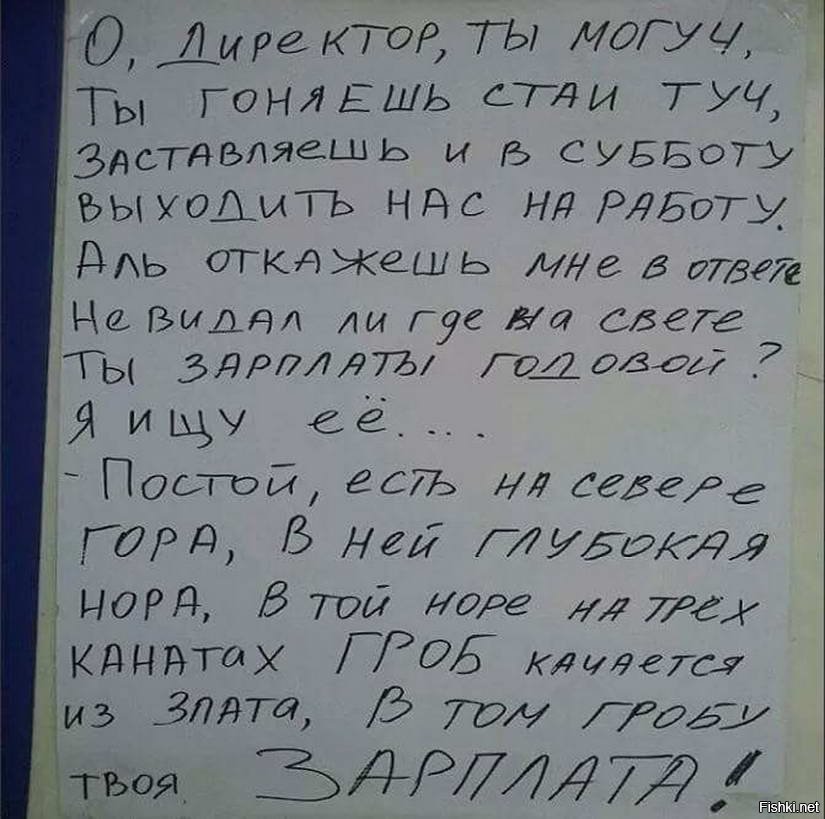 О, Директор, ты могуч,
Ты гоняешь стаи туч,
Заставляешь и в субботу
Выходить нас на работу.
Аль откажешь мне в ответе
Не видал ли где на свете
Ты зарплаты годовой?
Я ищу её....
- Постой, есть на севере
гора, в ней глубокая
нора, в той норе на трёх
канатах ГРОБ качается
из злата, в том гробу
твоя ЗАРПЛАТА!
Fishki.net